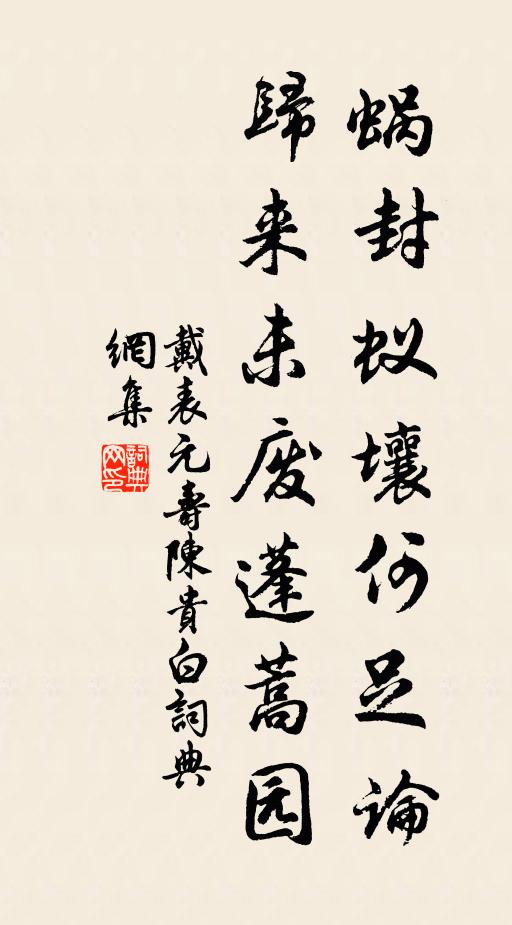 蜗封蚁壤何足論
歸来未废蓬蒿园
戴表元壽陳貴白詞典
網集
詞典网印